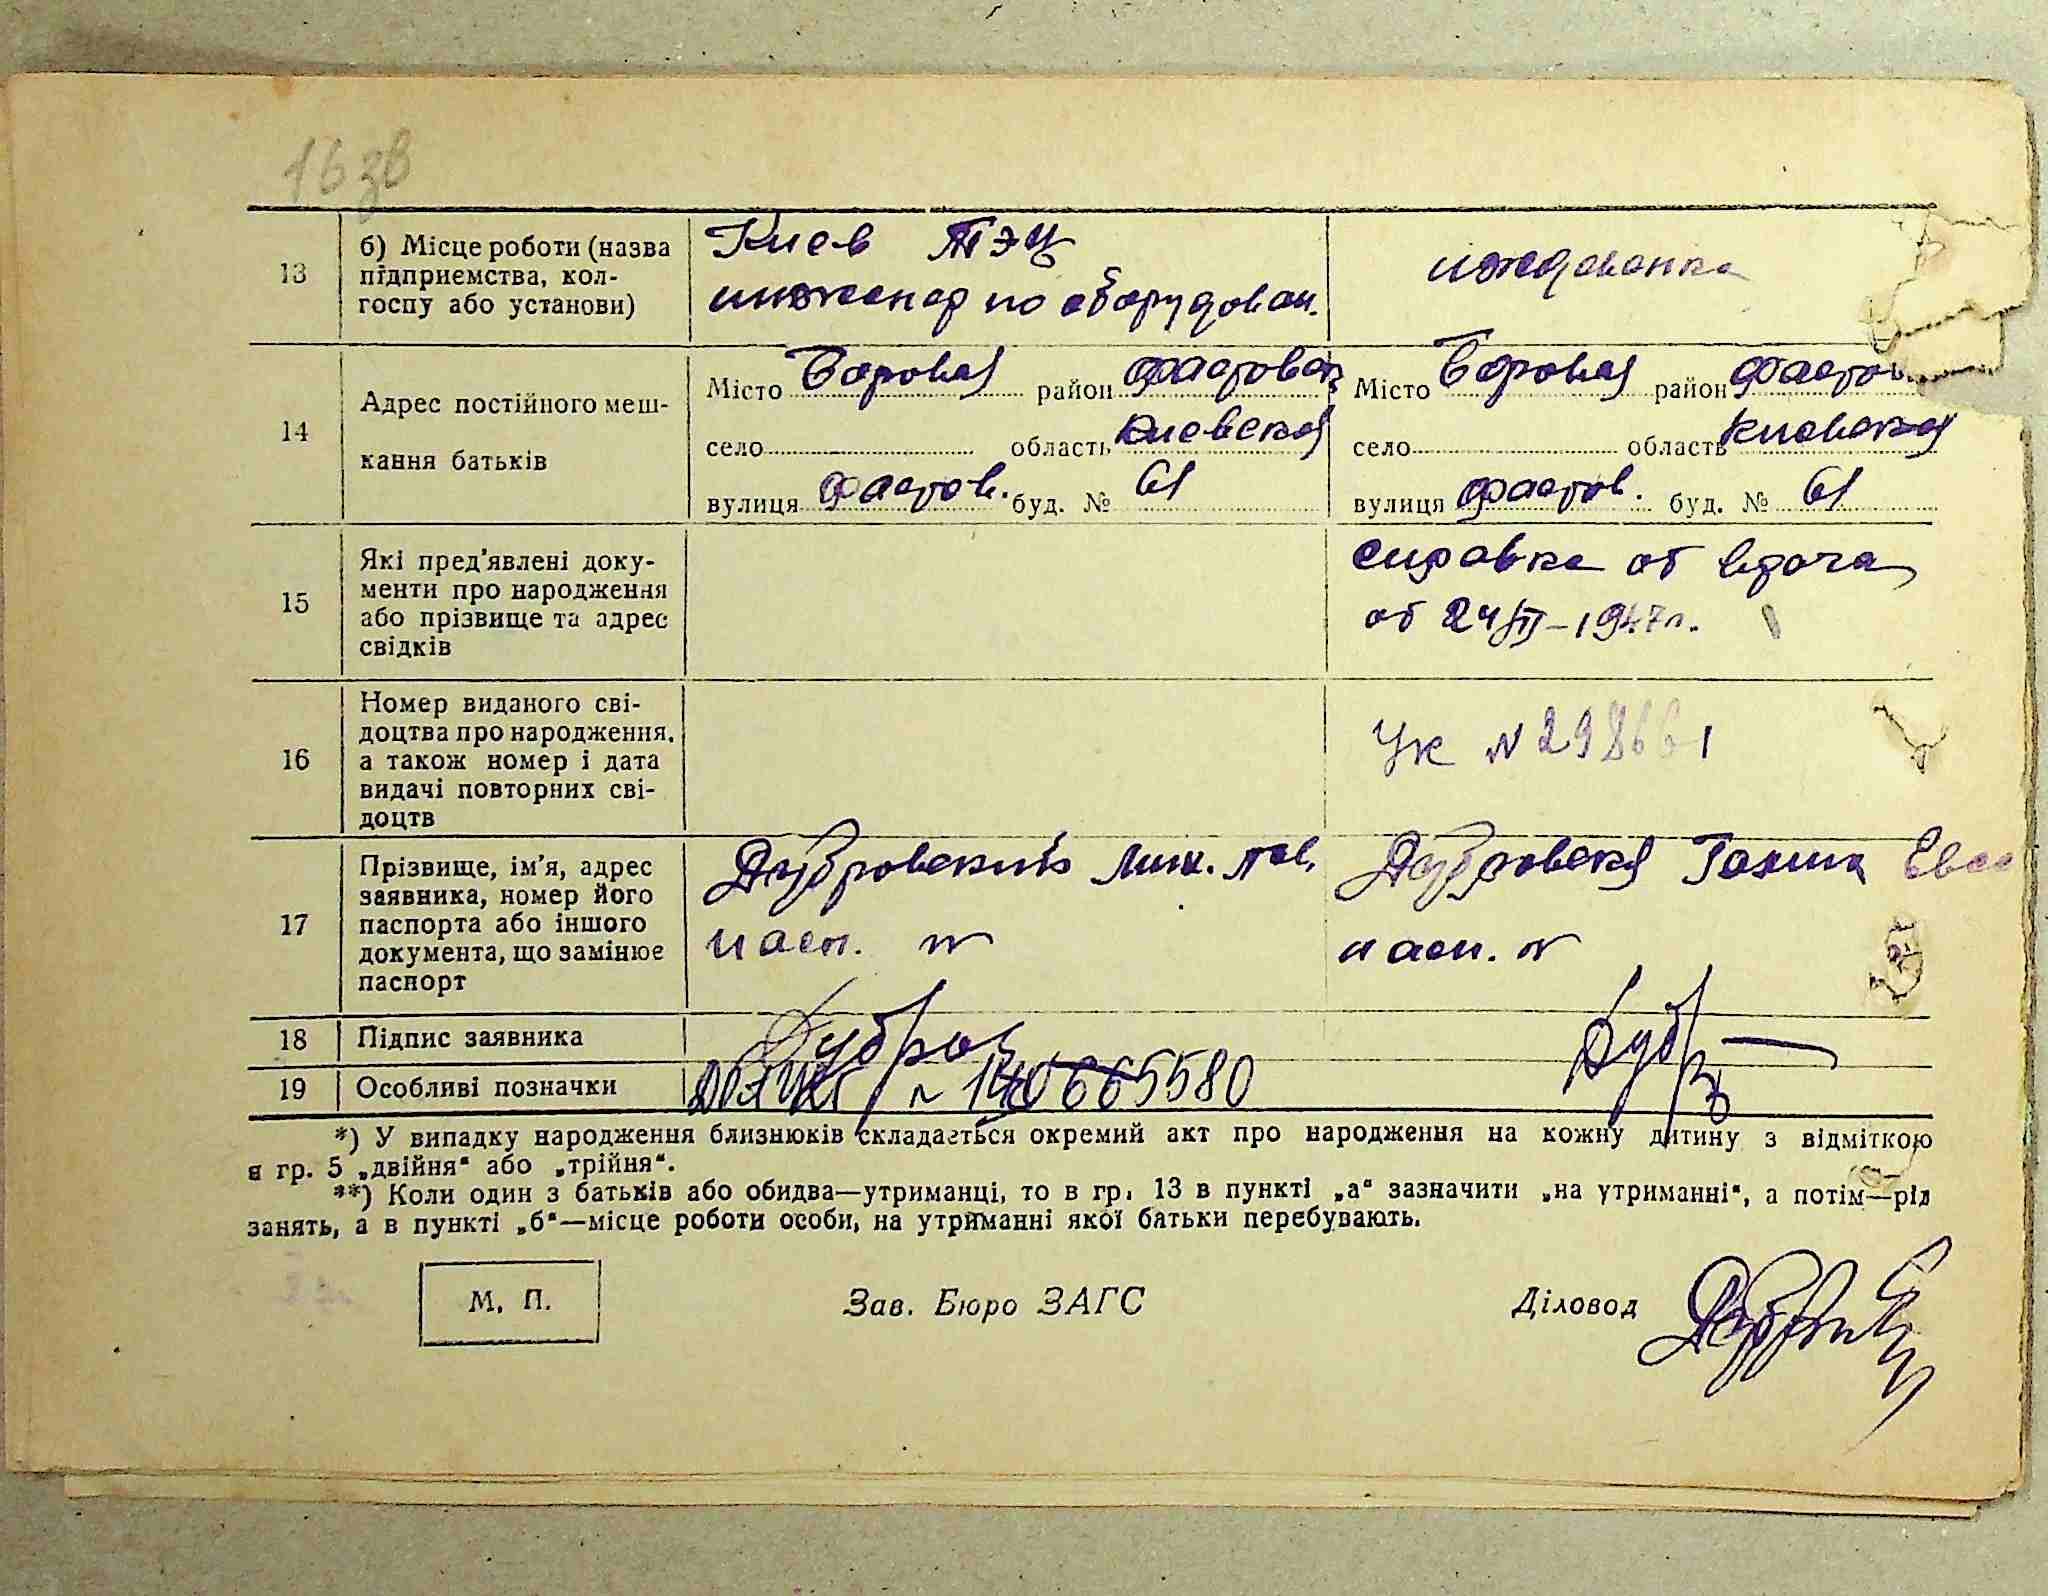 16 зв
13
б) Місце роботи (назва
підприємства, кол-
госпу або установи)
Киев ТЭЦ
инженер по оборудован.
иждевенка
14
Адрес постійного меш-
кання батьків
Місто Боровая район Фастовск
село область Киевская
вулиця Фастов. буд. № 61
Місто Боровая район Фастов
село область Киевская
вулиця Фастов. буд. № 61
15
Які пред'явлені доку-
менти про народження
або прізвище та адрес
свідків
справка от врача
от 24/II–1947г.
16
Номер виданого сві-
доцтва про народження,
а також номер і дата
видачі повторних сві-
доцтв
Ук N 298661
17
Прізвище, ім'я, адрес
заявника, номер його
паспорта або іншого
документа, що замінює
паспорт
Дубровский Мих. Пав.
пасп. №
Дубровская Галина Евсе
пасп. №
18
Підпис заявника
Дубров
Дубр
19
Особливі позначки
665580
*) У випадку народження близнюків складається окремий акт про народження на кожну дитину з відміткою
в гр. 5 „двійня“ або „трійня“.
**) Коли один з батьків або обидва—утриманці, то в гр. 13 в пункті „а“ зазначити „на утриманні“, а потім—рід
занять, а в пункті „б“—місце роботи особи, на утриманні якої батьки перебувають.
М. П.
Зав. Бюро ЗАГС
Діловод